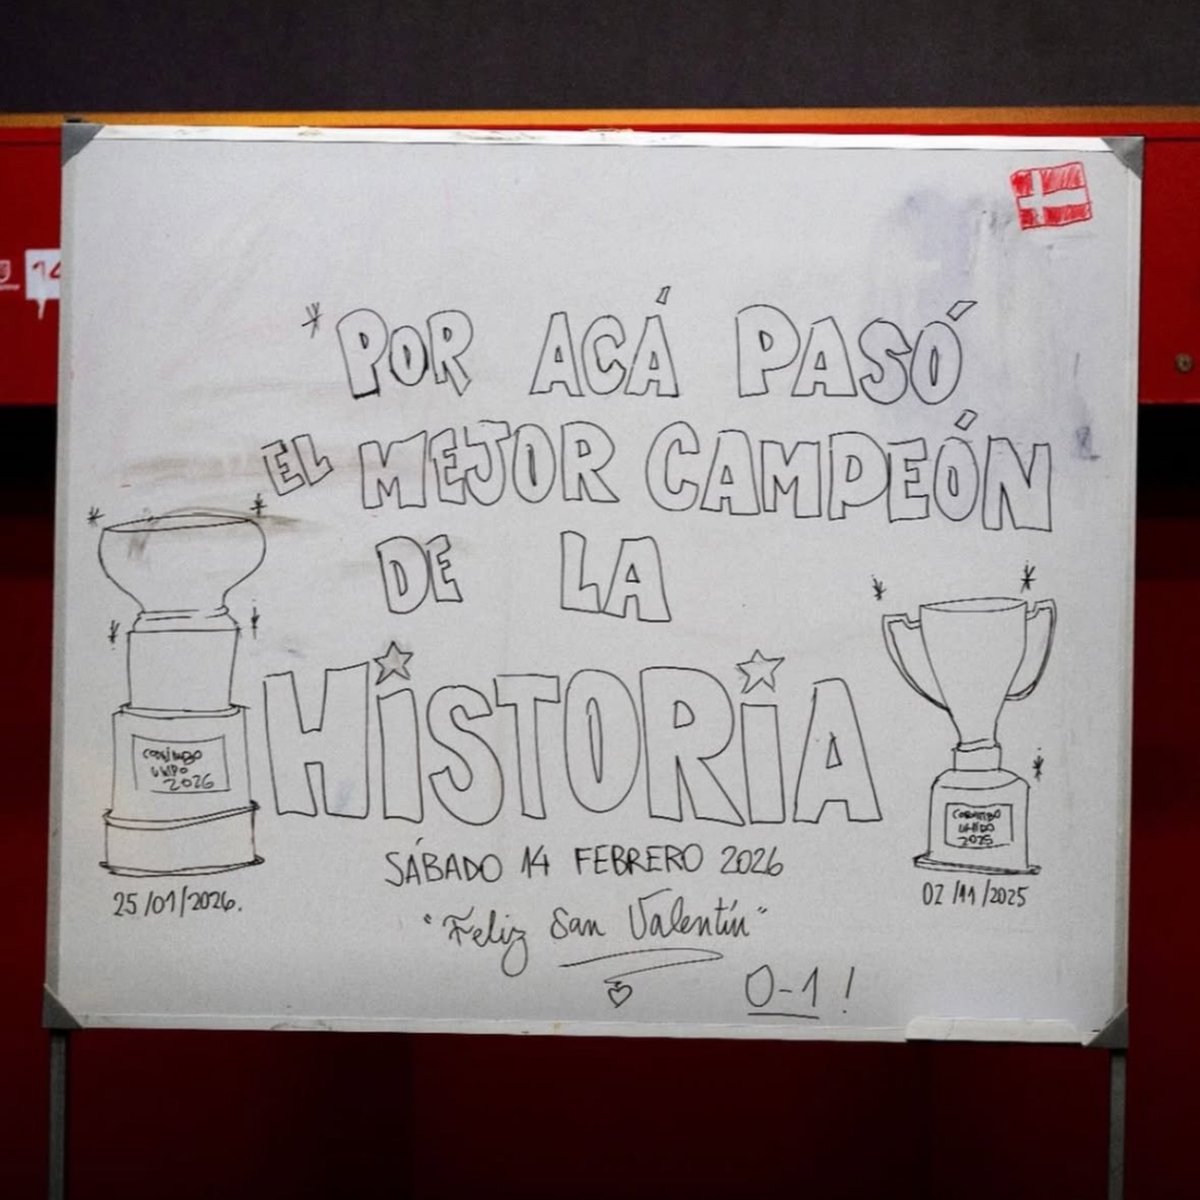 14
*POR ACÁ PASÓ
EL MEJOR CAMPEÓN
DE LA
HiSTORiA
COQUIMBO
UNIDO
2026
25/01/2026.
COQUIMBO
UNIDO
2025
02/11/2025
SÁBADO 14 FEBRERO 2026
"Feliz San Valentín"
0-1!